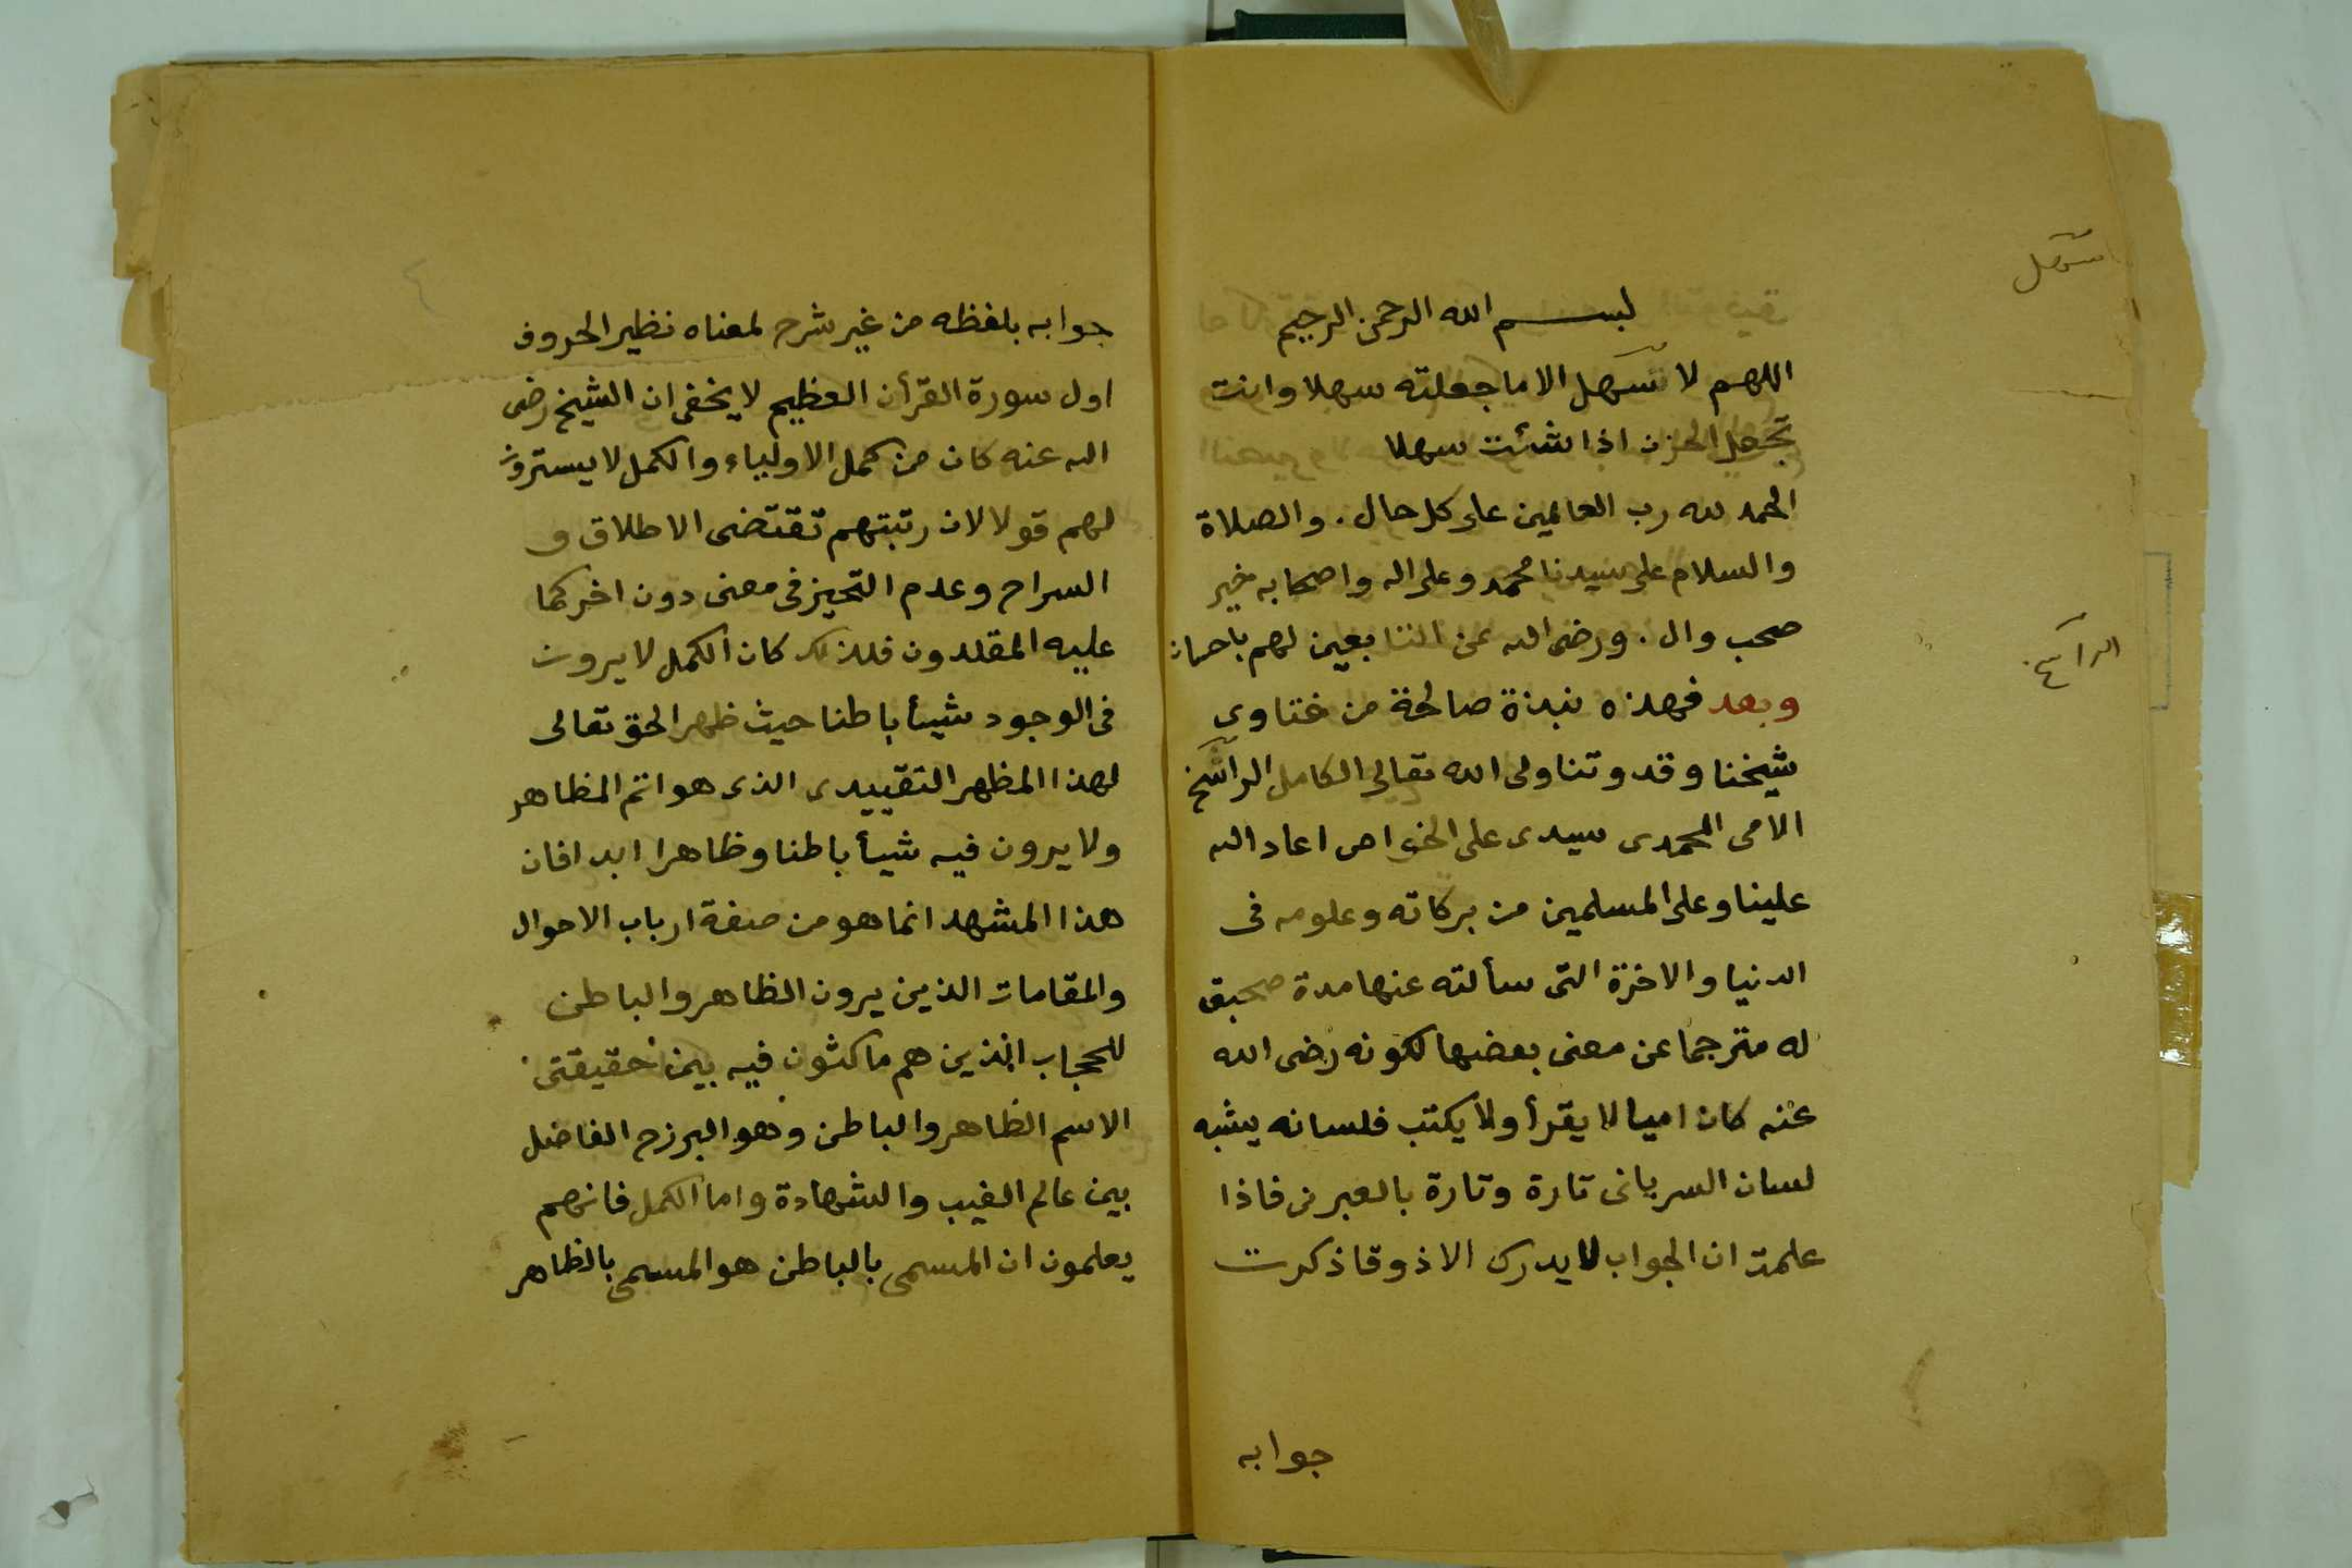 بسم الله الرحمن الرحيم
اللهم لا سهل الا ما جعلته سهلا وانت
تجعل الحزن اذا شئت سهلا
الحمد لله رب العالمين على كل حال . والصلاة
والسلام على سيدنا محمد وعلى اله واصحابه خير
صحب وال . ورضى الله عن التابعين لهم باحسان
وبعد فهذه نبذة صالحة من فتاوى
شيخنا وقدوتنا ولى الله تعالى الكامل الراسخ
الامى المحمدى سيدى على الخواص اعاد الله
علينا وعلى المسلمين من بركاته وعلومه فى
الدنيا والاخرة التى سألته عنها مدة صحبتى
له مترجما عن معنى بعضها لكونه رضى الله
عنه كان اميا لا يقرأ ولا يكتب فلسانه يشبه
لسان السريانى تارة وتارة بالعبرنى فاذا
علمت ان الجواب لا يدرك الا ذوقا ذكرت
جوابه
سهل
الراسخ
جوابه بلفظه من غير شرح لمعناه نظير الحروف
اول سورة القرأن العظيم لا يخفى ان الشيخ رضى
الله عنه كان من كمل الاولياء والكمل لا يسترون
لهم قولا لان رتبتهم تقتضى الاطلاق و
السراح وعدم التحيز فى معنى دون اخر كما
عليه المقلدون فلذلك كان الكمل لا يرون
فى الوجود شيأ باطنا حيث ظهر الحق تعالى
لهذا المظهر التقييدى الذى هو اتم المظاهر
ولا يرون فيه شيأ باطنا وظاهرا ابدا فان
هذا المشهد انما هو من صفة ارباب الاحوال
والمقامات الذين يرون الظاهر والباطن
للحجاب الذين هم ماكثون فيه بين حقيقتى
الاسم الظاهر والباطن وهو البرزح الفاضل
بين عالم الغيب والشهادة واما الكمل فانهم
يعلمون ان المسمى بالباطن هو المسمى بالظاهر